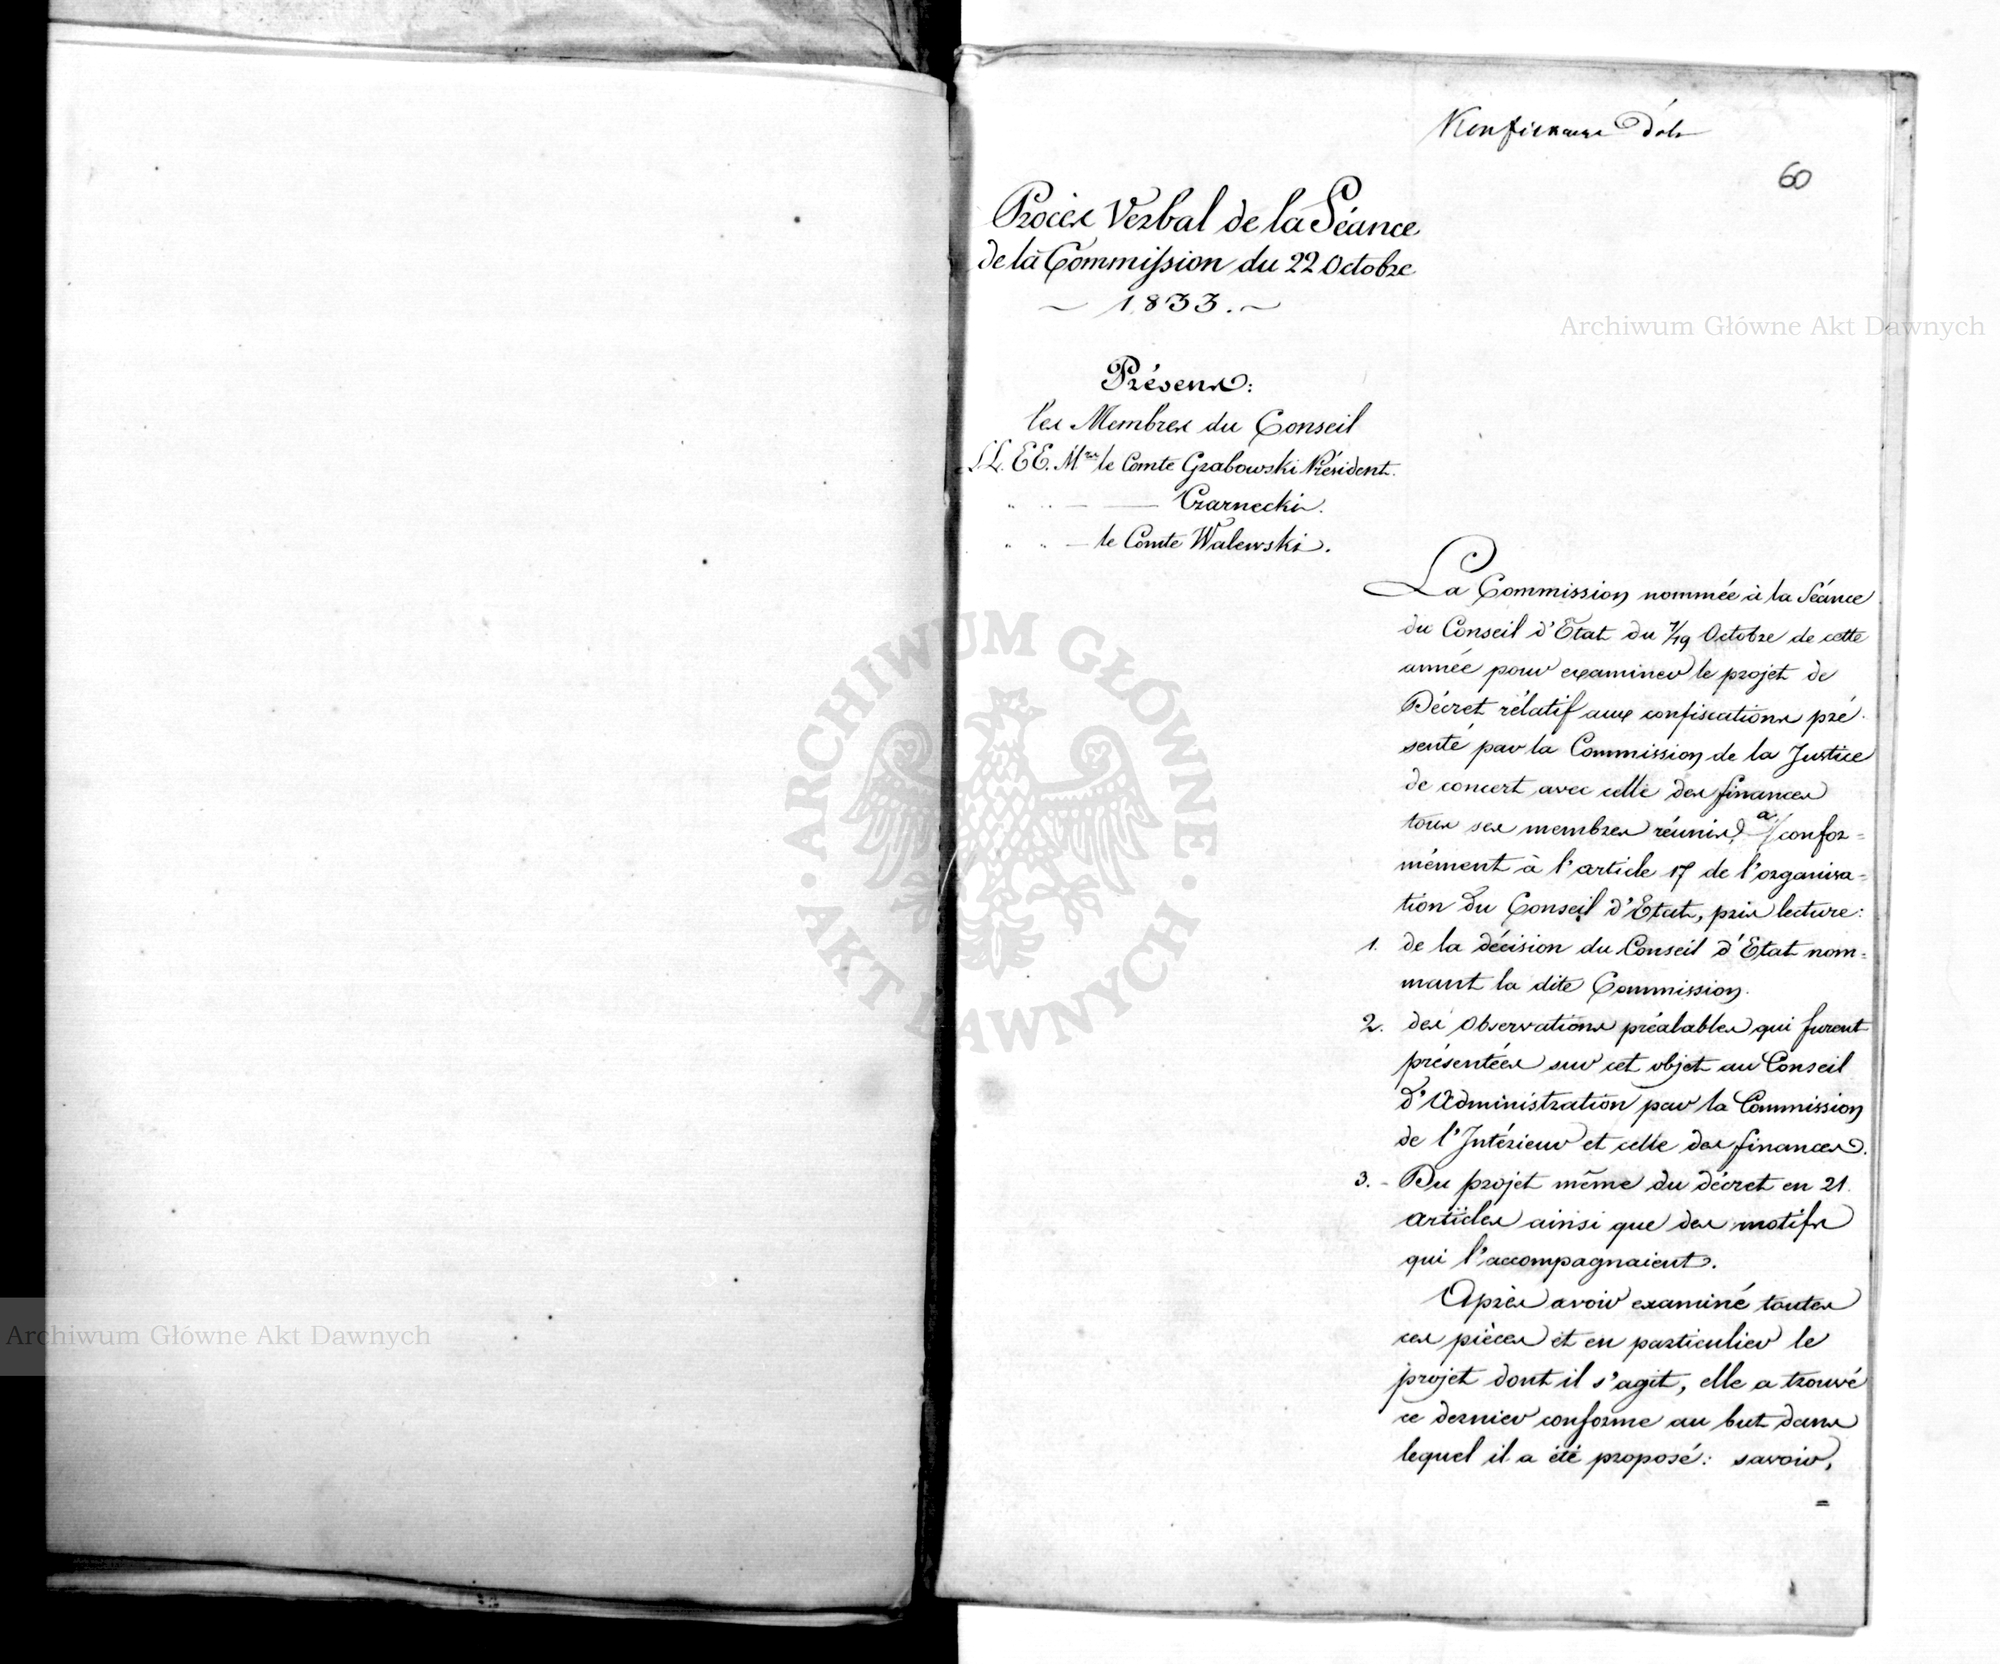 60
Procès Verbal de la Séance
de la Commission du 22 Octobre
1833.
Présens:
les Membres du Conseil
LL. EE. Mrs le Comte Grabowski Président.
" " — — Czarnecki.
" " — le Comte Walewski.
La Commission nommée à la Séance
du Conseil d'Etat du 7/19 Octobre de cette
année pour examiner le projet de
Décret rélatif aux confiscations pré-
senté par la Commission de la Justice
de concert avec celle des finances
tous ses membres réunis, a, confor=
mément à l'article 17 de l'organisa=
tion du Conseil d'Etat, pris lecture:
1. de la décision du Conseil d'Etat nom=
mant la dite Commission.
2. des Observations préalables qui furent
présentées sur cet objet au Conseil
d'Administration par la Commission
de l'Intérieur et celle des finances.
3. - Du projet même du décret en 21.
articles ainsi que des motifs
qui l'accompagnaient.
Après avoir examiné toutes
ces pièces et en particulier le
projet dont il s'agit, elle a trouvé
ce dernier conforme au but dans
lequel il a été proposé: savoir,
=
Archiwum Główne Akt Dawnych
ARCHIWUM GŁÓWNE
· AKT DAWNYCH ·
Archiwum Główne Akt Dawnych